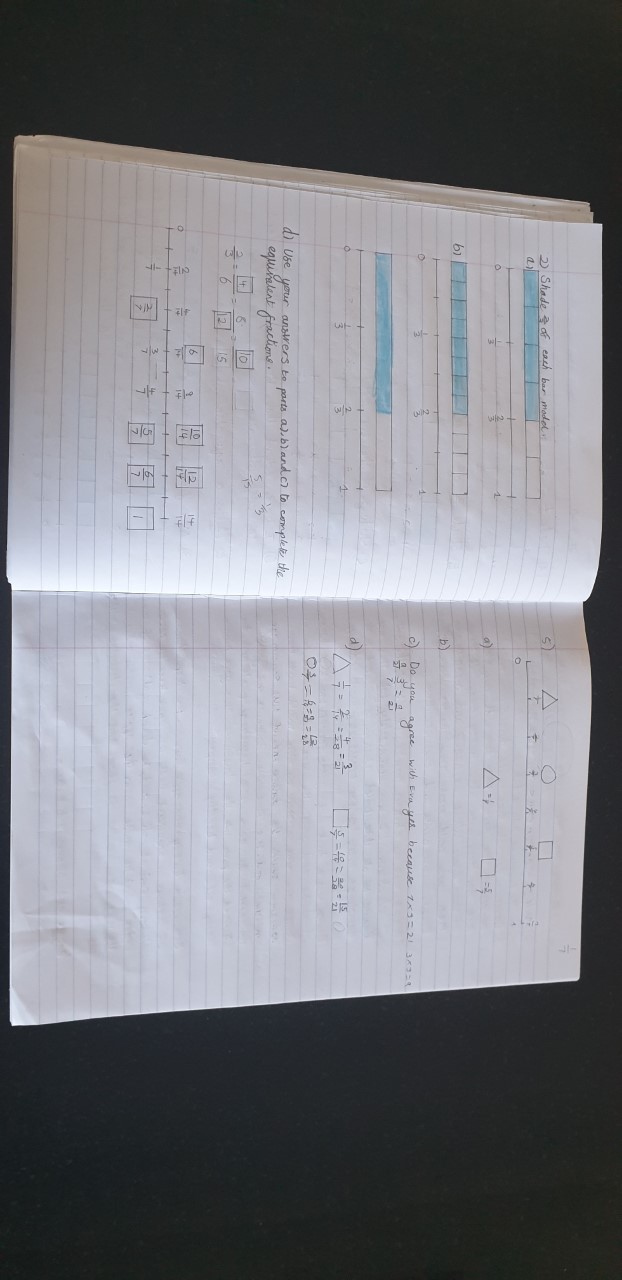 2) Shade 2/3 of each bar model.
a)
0 1/3 2/3 1
b)
0 1/3 2/3 1
0 1/3 2/3 1
d) Use your answers to parts a), b) and c) to complete the
equivalent fractions.
2/3 = 4/6 = 8/12 = 10/15
0 2/14 4/14 6/14 10/14 12/14 14/14
1/7 2/7 3/7 4/7 5/7 6/7 1
5)
0 1
1/7
a) △ = 1/7 □ = 5/7
b)
c) Do you agree with Eva yes because 7×3=21 3×3=9
d)
△ 1/7 = 2/14 = 4/28 = 3/21 □ 5/7 = 10/14 = 20/28 = 15/21